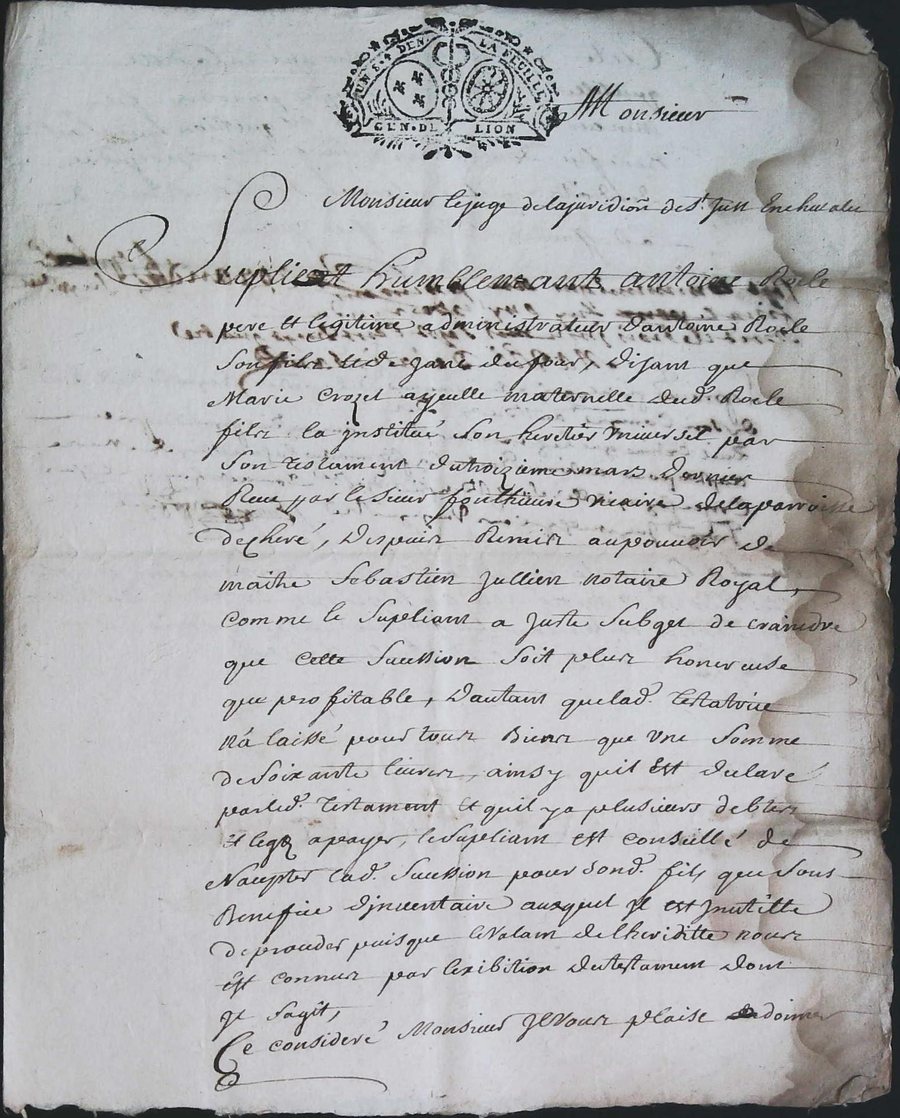 UN S. 4 DEN LA FEUILLE
GEN. DE LION
Monsieur
Monsieur le juge de la juridion de St Just Enchevalet
Suplient humblemant antoine Rocle
pere et legitime administrateur d'antoine Rocle
Son filz et de Jane dufour, disant que
Marie Crozet ayeulle maternelle dud. Rocle
filz la institué Son heretier Vniversel par
Son testament du troizieme mars dernier
Receu par le sieur vicaire de la parroisse
de Cheré, Despuis Remis au pouvoir de
maithe Sebastien Jullien notaire Royal,
comme le Supéliant a Juste Subget de craindre
que cette Suession soit plus honereuse
que profitable, D'autant que lad. Testatrice
n'a laissé pour tous Biens que Vne Somme
de Soixante livres, ainsy quil Est declaré
par led. Testament Et quil ya plusieurs debtes
Et legz a payer, le Supeliant est conseillé de
Naccepter lad. Suession pour Sond. fils que Sous
Benefice d'inventaire auquel Jl est Jnutille
de proceder puisque de lheriditte nous
Est connus par lexibition du testament dont
Jl Sagit,
Ce consideré Monsieur Jl Vous plaise donner